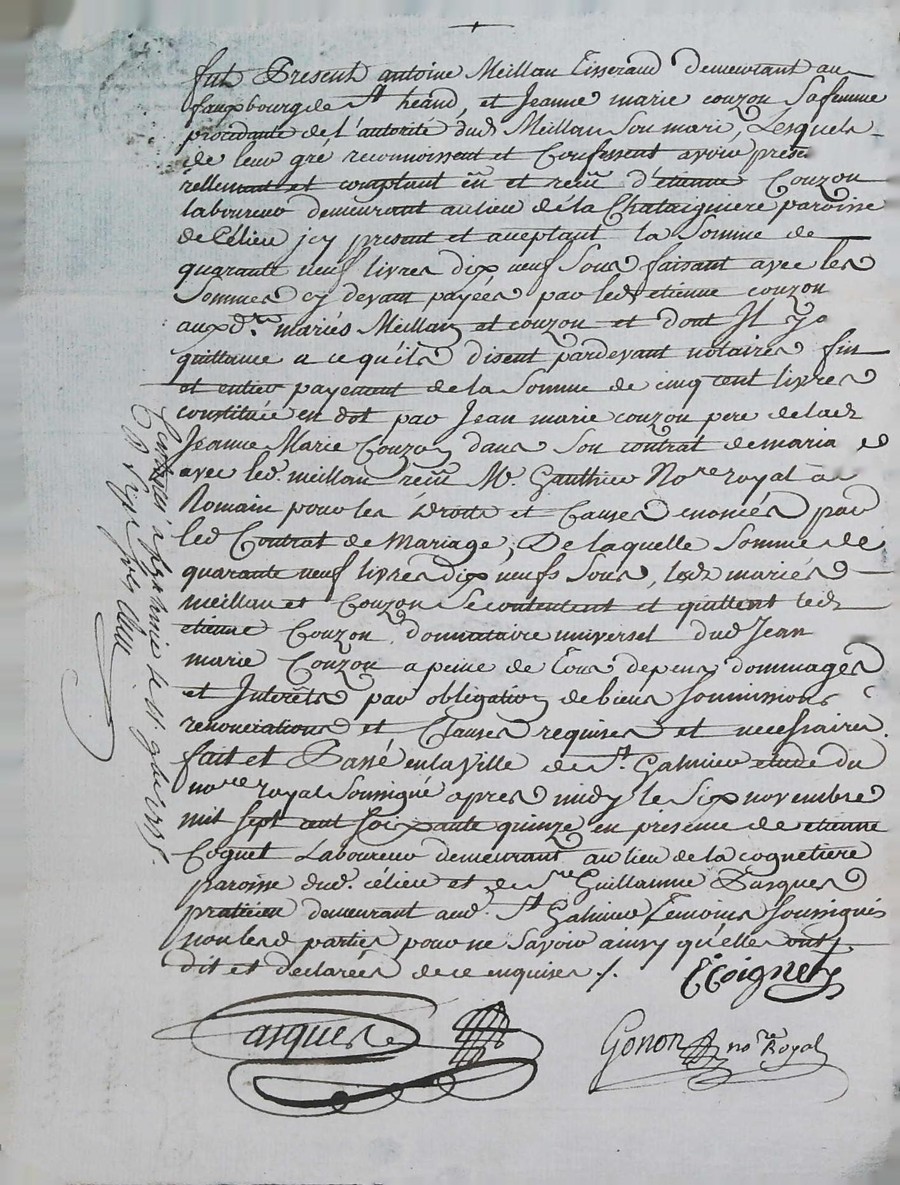 fut Present antoine Meillan Tisserand demeurant au
fauxbourg de St heand, et Jeanne marie couzon sa femme
procedante de l'autorité dud Meillan son mari, Lesquels
de leur gré reconnoissent et Confessent avoir prese
rellement et comptant eu et receu d'etienne Couzon
laboureur demeurant au lieu de la Chataigniere paroisse
de Célieu icy present et aceptant la Somme de
quarante neuf livres dix neuf Sous faisant avec les
Sommes cy devant payées par led etienne couzon
auxd. mariés Meillan et couzon et dont Il y a
quittance a ce qu'ils disent pardevant notaires fin
et entier payement de la Somme de cinq cent livres
constituée en dot par Jean marie couzon pere de lad
Jeanne Marie Couzon dans Son contrat de maria
avec led. meillan receu Me. Gauthier Nore royal a
Romain pour les Droits et Causes enoncés par
led Contrat de Mariage, De laquelle Somme de
quarante neuf livres dix neufs Sous, lesd mariés
meillan et Couzon Se contentent et quittent led
etienne Couzon donnataire universel dud Jean
marie Couzon a peine de Tous depens dommages
et Interêts par obligation de biens Soumissions
renonciations et Clauses requises et necessaires.
fait et Passé en la ville de St. Galmier etude du
nore royal Soussigné apres midy le Six novembre
mil sept cent soixante quinze en présence de etienne
Coignet Laboureur demeurant au lieu de la cognetiere
paroisse dud. célieu et de Sre Guillaume Pasques
praticien demeurant aud. St Galmier Temoins Soussignés
non lesd parties pour ne Savoir ainsy qu'elles ont
dit et declarées de ce enquises ./.
ECoignet
Pasques
Gonon nore Royal
Controllé à St galmier le 11 9bre 1775.